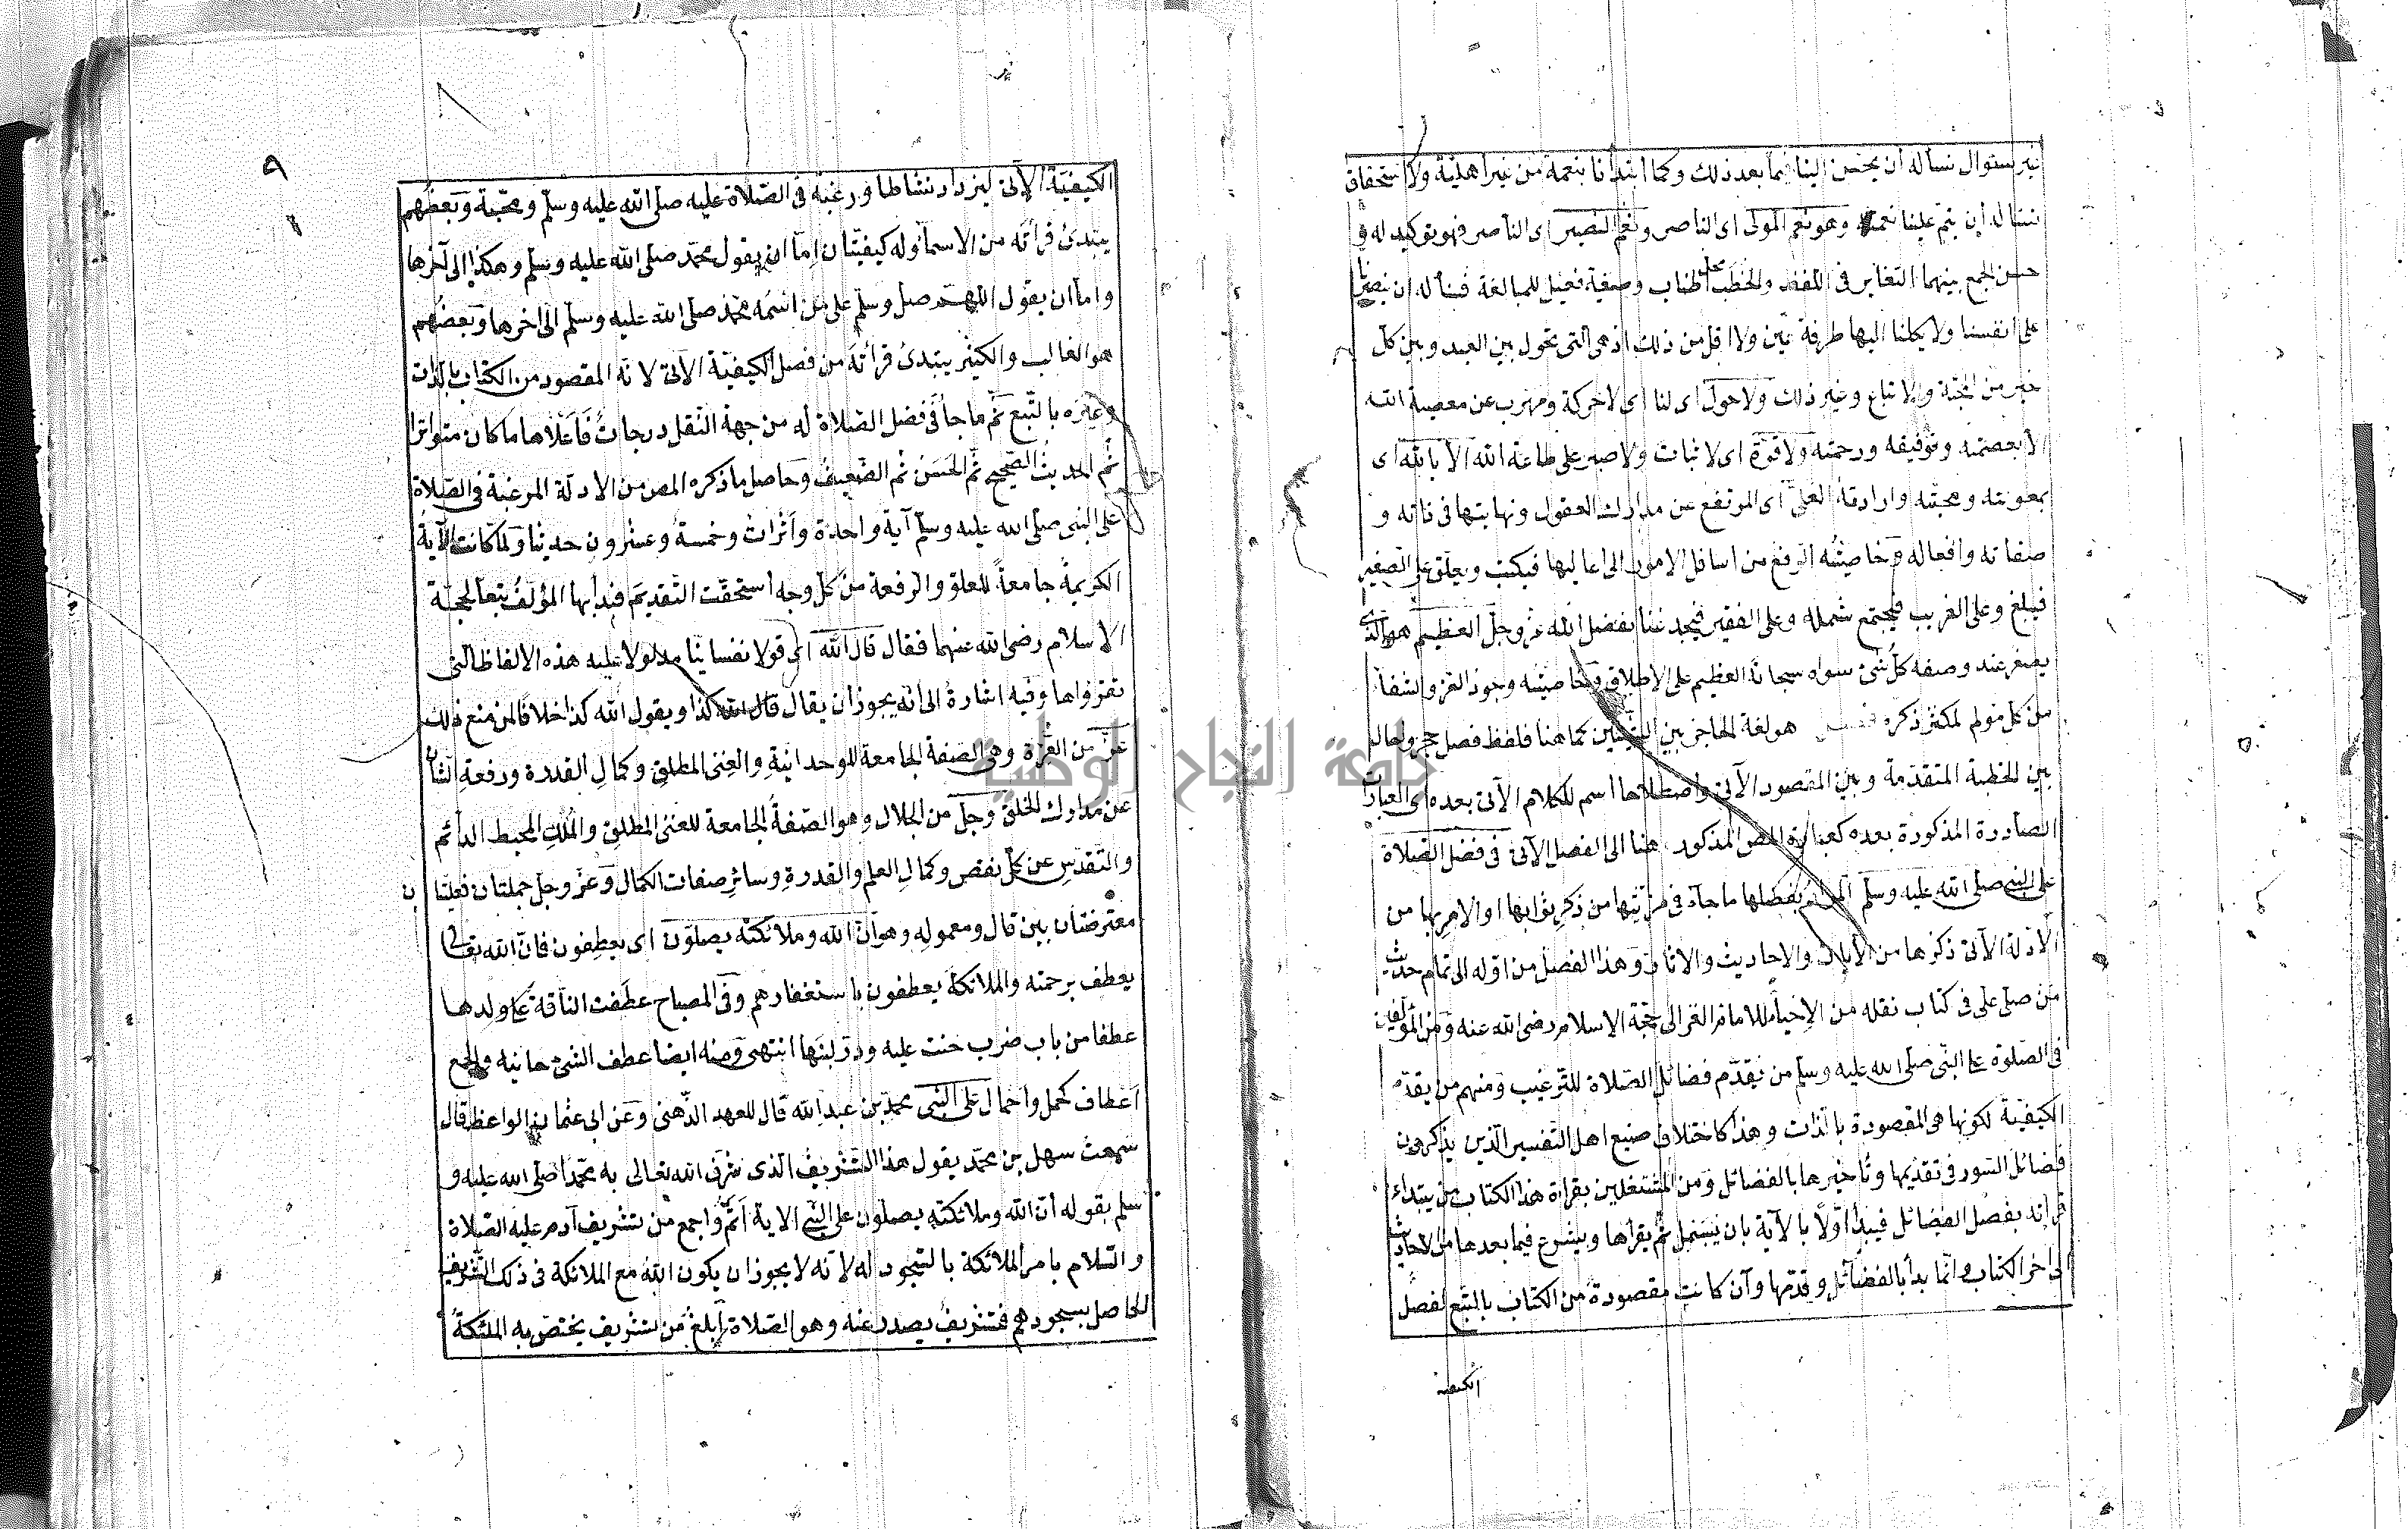 غير سؤال نسأله ان يحسن الينا فيما بعد ذلك وكما ابتدأنا بنعمة من غير اهلية ولا استحقاق
نسأله ان يتم علينا نعمته وهو نعم المولى اى الناصر ونعم النصير اى الناصر فهو توكيد له و
حسن الجمع بينهما التغاير فى اللفظ والخطب محل اطناب وصيغة فعيل للمبالغة فنسأله ان ينصرنا
على انفسنا ولا يكلنا اليها طرفة عين ولا اقل من ذلك اذ هى التى تحول بين العبد وبين كل
خير من المحبة والاتباع وغير ذلك ولا حول اى لنا اى لا حركة ومهرب عن معصية الله
الا بعصمته وتوفيقه ورحمته ولا قوة اى لا ثبات ولا صبر على طاعة الله الا بالله اى
بمعونته ومحبته وارادته العلى اى المرتفع عن مدارك العقول ونهايتها فى ذاته و
صفاته وافعاله وخاصيته الرفع من اسافل الامور الى اعاليها فيكتب ويعلق على الصغير
فيبلغ وعلى الغريب فيجتمع شمله وعلى الفقير فيجد غنا بفضل الله عز وجل العظيم هو الذى
يصغر عند وصفه كل شئ سواه سبحانه العظيم على الاطلاق وخاصيته وجود العز والشفأ
من كل مولم لمكثر ذكره هو لغة الحاجز بين الشيئين كما هنا فلفظ فصل حجز وحال
بين الخطبة المتقدمة وبين المقصود الآتى واصطلاحا اسم للكلام الآتى بعده اى العبارات
الصادرة المذكورة بعده كعبارة المص المذكور هنا الى الفصل الآتى فى فضل الصلاة
على النبى صلى الله عليه وسلم المراد بفضلها ما جاء فى مزيتها من ذكر ثوابها او الامر بها من
الادلة الآتى ذكرها من الآيات والاحاديث والاثار وهذا الفصل من اوله الى تمام حديث
من صلى على فى كتاب نقله من الاحياء للامام الغزالى حجة الاسلام رضى الله عنه ومن المؤلفين
فى الصلوة على النبى صلى الله عليه وسلم من يقدم فضائل الصلاة للترغيب ومنهم من يقدم
الكيفية لكونها هى المقصودة بالذات وهذا كاختلاف صنيع اهل التفسير الذين يذكرون
فضائل السور فى تقديمها وتأخيرها بالفضائل ومن المشتغلين بقراءة هذا الكتاب من يبتداء
قراته بفصل الفضائل فيبدأ اولا بالآية بان يبسمل ثم يقرأها ويشرع فيما بعدها من الاحاديث
الى اخر الكتاب وانما بدأ بالفضائل وقدمها وان كانت مقصودة من الكتاب بالتبع لفصل
الكيفية
٩
الكيفية الآتى ليزداد نشاطا ورغبة فى الصلاة عليه صلى الله عليه وسلم ومحبة وبعضهم
يبتدئ قرأته من الاسمأ وله كيفيتان اما ان يقول محمد صلى الله عليه وسلم وهكذا الى آخرها
واما ان يقول اللهم صل وسلم على من اسمه محمد صلى الله عليه وسلم الى اخرها وبعضهم
هو الغالب والكثير يبتدئ قرأته من فصل الكيفية الآتى لانه المقصود من الكتاب بالذات
وغيره بالتبع ثم ما جأ فى فضل الصلاة له من جهة النقل درجات فاعلاها ما كان متواترا
ثم الحديث الصحيح ثم الحسن ثم الضعيف وحاصل ما ذكره المص من الادلة المرغبة فى الصلاة
على النبى صلى الله عليه وسلم آية واحدة واثرات وخمسة وعشرون حديثا ولما كانت الآية
الكريمة جامعة للعلو والرفعة من كل وجه استحقت التقديم فبدأ بها المؤلف تبعا لحجة
الاسلام رضى الله عنهما فقال قال الله اى قولا نفسانيا مدلولا عليه هذه الالفاظ التى
نقرؤاها وفيه اشارة الى انه يجوز ان يقال قال الله كذا ويقول الله كذا خلافا لمن منع ذلك
عز من العزة وهى الصفة الجامعة للوحدانية والغنى المطلق وكمال القدرة ورفعة الشان
عن مدارك الخلق وجل من الجلال وهو الصفة الجامعة للغنى المطلق والملك المحيط الدائم
والتقدس عن كل نقص وكمال العلم والقدرة وسائر صفات الكمال وعز وجل جملتان فعليتا ن
معترضتان بين قال ومعموله وهو ان الله وملائكته يصلون اى يعطفون فان الله تعالى
يعطف برحمته والملائكة يعطفون باستغفارهم وفى المصباح عطفت الناقة على ولدها
عطفا من باب ضرب حنت عليه ودر لبنها انتهى ومنه ايضا عطف الشئ جانبه والجمع
اعطاف كحمل واحمال على النبى محمد بن عبد الله قال للعهد الذهنى وعن ابى عثمان الواعظ قال
سمعت سهل بن محمد يقول هذا التشريف الذى شرف الله تعالى به محمدا صلى الله عليه و
سلم بقوله ان الله وملائكته يصلون على النبى الاية اتم واجمع من تشريف آدم عليه الصلاة
والسلام بامر الملائكة بالسجود له لانه لا يجوز ان يكون الله مع الملائكة فى ذلك التشريف
الحاصل بسجودهم فتشريف يصدر عنه وهو الصلاة ابلغ من تشريف يختص به الملئكة
جامعة النجاح الوطنية